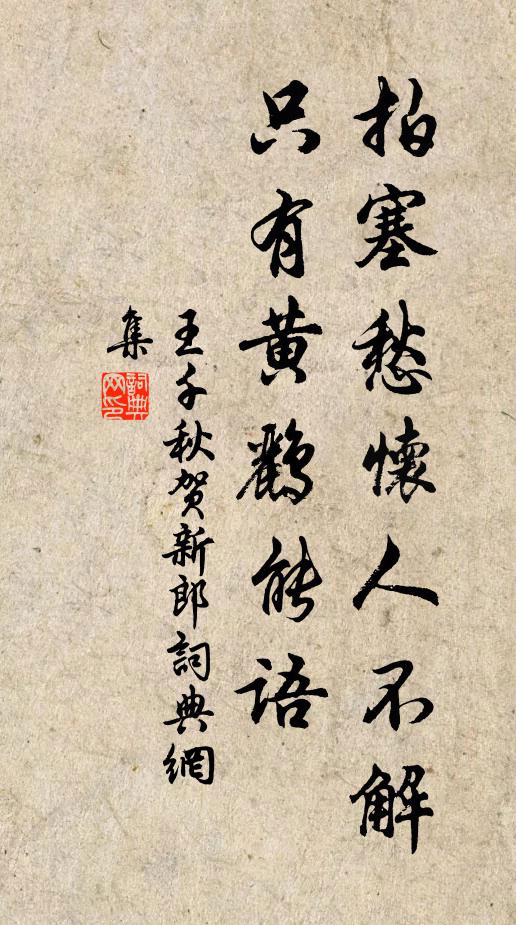 拍塞愁懷人不解
只有黄鸝能語
王千秋贺新郎詞典網
集
詞典網印